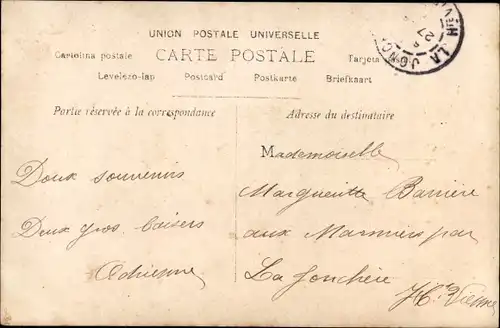 UNION POSTALE UNIVERSELLE
CARTE POSTALE
Cartolina postale
Tarjeta
Levelezo-lap Postcard Postkarte Briefkaart
LA JONC
Hte V
27
Partie réservée à la correspondance
Adresse du destinataire
Doux souvenirs
Deux gros baisers
Adrienne
Mademoiselle
Margueritte Barrière
aux Marniers par
La Jonchère
Hte Vienne